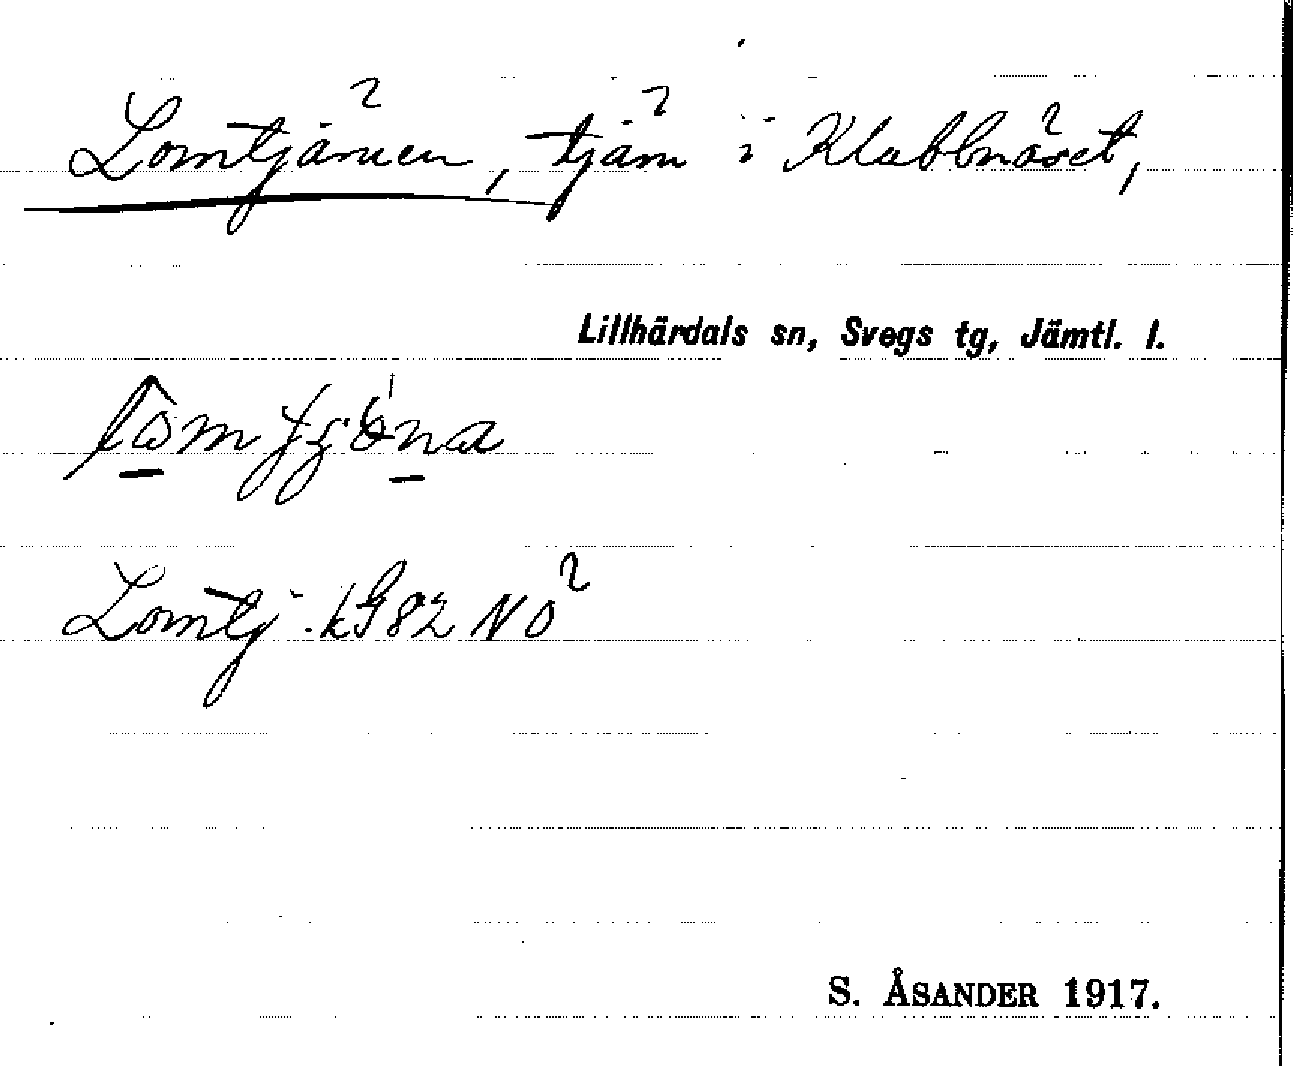 Lomtjärnen, tjärn i Klabbnäset,
Lillhärdals sn, Svegs tg, Jämtl. l.
Lomtj. kG82 NO
S. ÅSANDER 1917.